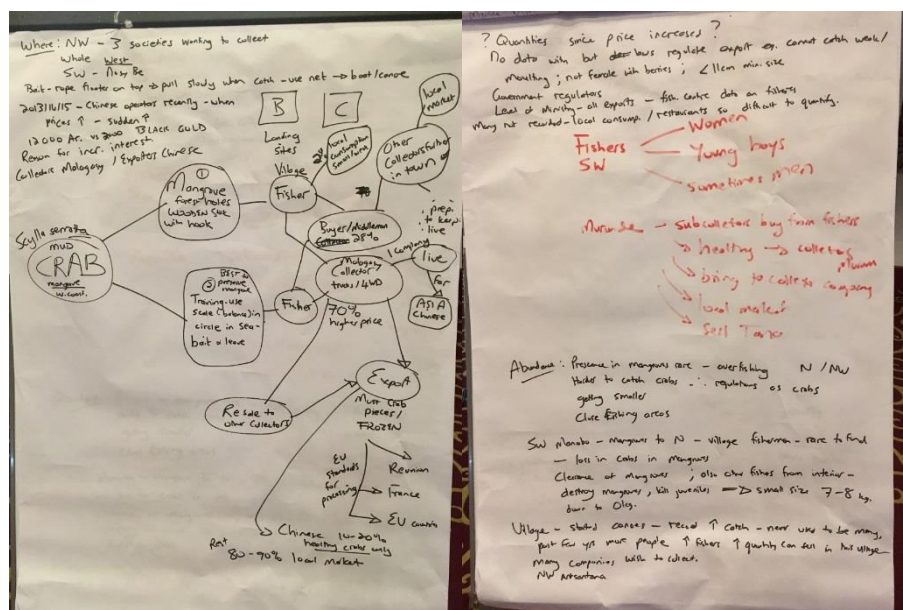 Where: NW - 3 societies wanting to collect
Whole West
SW - Nosy Be
Bait - rope floater on top → pull slowly when catch - use net → boat/canoe
2013/14/15 - Chinese operators recently - when
prices ↑ - sudden ↑
12000 Ar. vs 2000 BLACK GOLD
Reason for incr. interest
Collectors Malagasy / Exporters Chinese
B
C
Loading
sites
Village
Fisher
local
consumption
local
market
Other
Collectors
in town
Scylla serrata
MUD
CRAB
mangrove
①
Mangrove
forest-holes
WOODEN Stick
with hook
②
BEST to
preserve
mangrove
Training-use
scale (balance) in
circle in sea-
bait & leave
Fisher
Buyer/Middleman
28%
1 company
Malagasy
Collector
trucks/4WD
70%
higher price
prep.
to keep
live
live
for
ASIA
Chinese
Resale to
other Collectors
Export
Must Crab
pieces/
FROZEN
EU
standards
for
processing
Reunion
France
EU countries
Chinese 10-20%
healthy crabs only
Rest
80-90% local market
? Quantities since price increased ?
No data with but laws regulate export eg. cannot catch weak/
moulting ; not female with berries ; <11cm min. size
Government regulators
Level of Ministry - all exports - fish. centre data on fishers
Many not recorded - local consump. / restaurants so difficult to quantify.
Fishers
SW
Women
Young boys
sometimes men
- subcollectors buy from fishers
healthy → collectors
bring to collect company
local market
Sell Tana
Abundance: Presence in mangroves rare - overfishing N / NW
Harder to catch crabs ∴ regulations as crabs
getting smaller
Close fishing areas
SW Manabo - mangroves to N - village fisherman - rare to find
- loss in crabs in mangroves
Clearance of mangroves ; also other fishers from interior -
destroy mangroves, kill juveniles → small size 7-8 kg.
down to 0kg.
Village - started canoes - record ↑ catch - never used to be many,
past few yrs more people ↑ fishers ↑ quantity can sell in this village
Many companies wish to collect.
NW